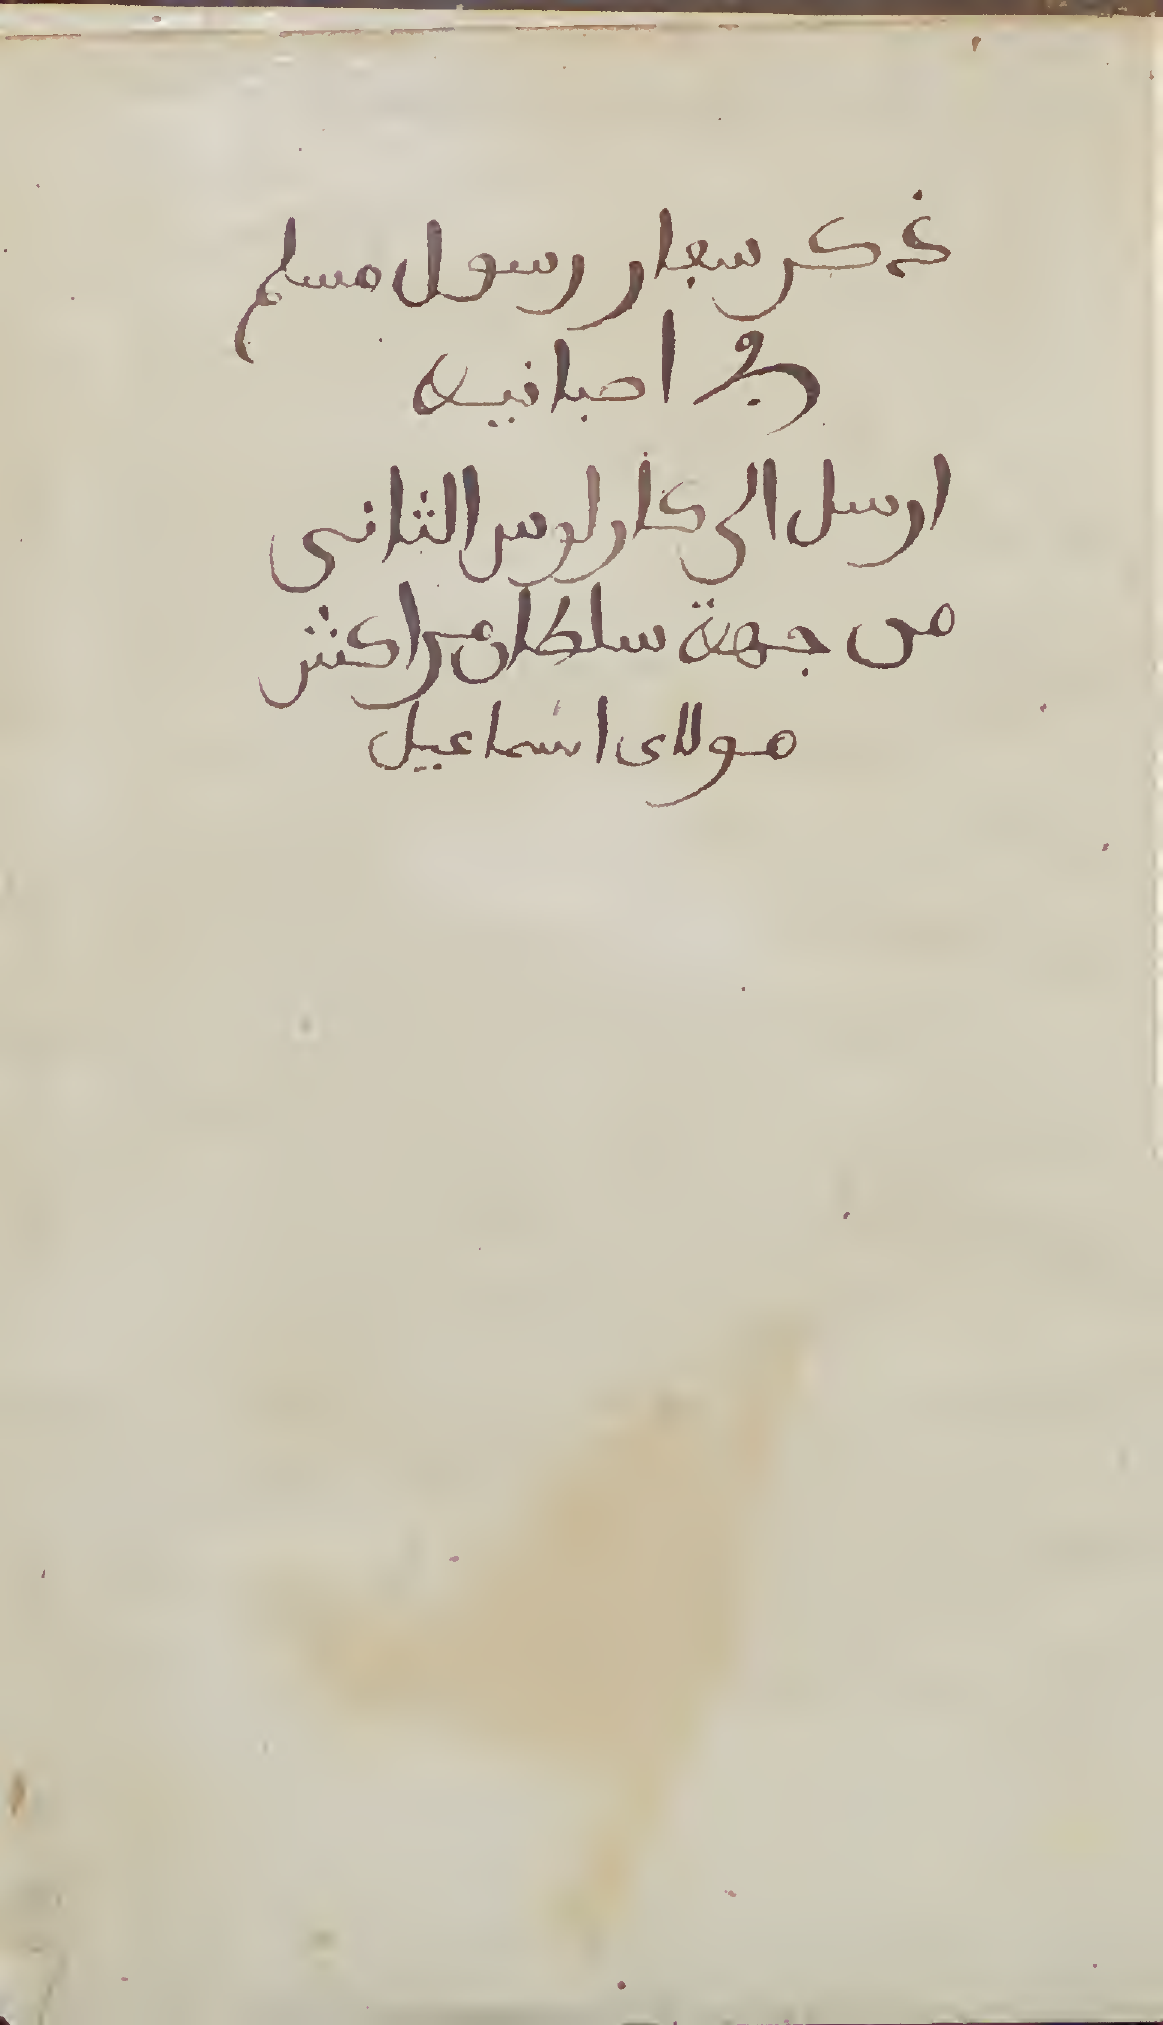 ذكر سفار رسول مسلم
في اصبانيه
ارسل الى كارلوس الثاني
من جهة سلطان مراكش
مولاى اسماعيل